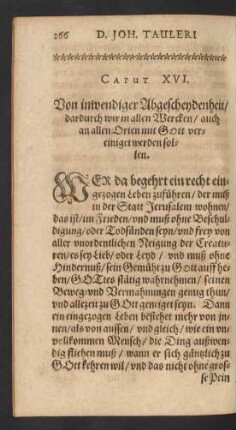 166 D. JOH. TAULERI
CAPUT XVI.
Von inwendiger Abgescheydenheit/
dardurch wir in allen Wercken/ auch
an allen Orten mit GOtt ver-
einiget werden sol-
len.
WER da begehrt ein recht ein-
gezogen Leben zuführen/ der muß
in der Statt Jerusalem wohnen/
das ist/ im Frieden/ und muß ohne Beschul-
digung/ oder Todsünden seyn/ und frey von
aller unordentlichen Neigung der Creatu-
ren/ es sey Lieb/ oder Leyd/ und muß ohne
Hindernuß/ sein Gemüht zu GOtt auff he-
ben/ GOTtes stätig wahrnehmen/ seinen
Beweg- und Vermahnungen genug thun/
und allezeit zu GOtt geneigt seyn. Dann
ein eingezogen Leben bestehet mehr von in-
nen/ als von aussen/ und gleich/ wie ein un-
vollkommen Mensch/ die Ding außwen-
dig fliehen muß/ wann er sich gäntzlich zu
GOtt kehren wil/ und das nicht ohne gros-
se Pein